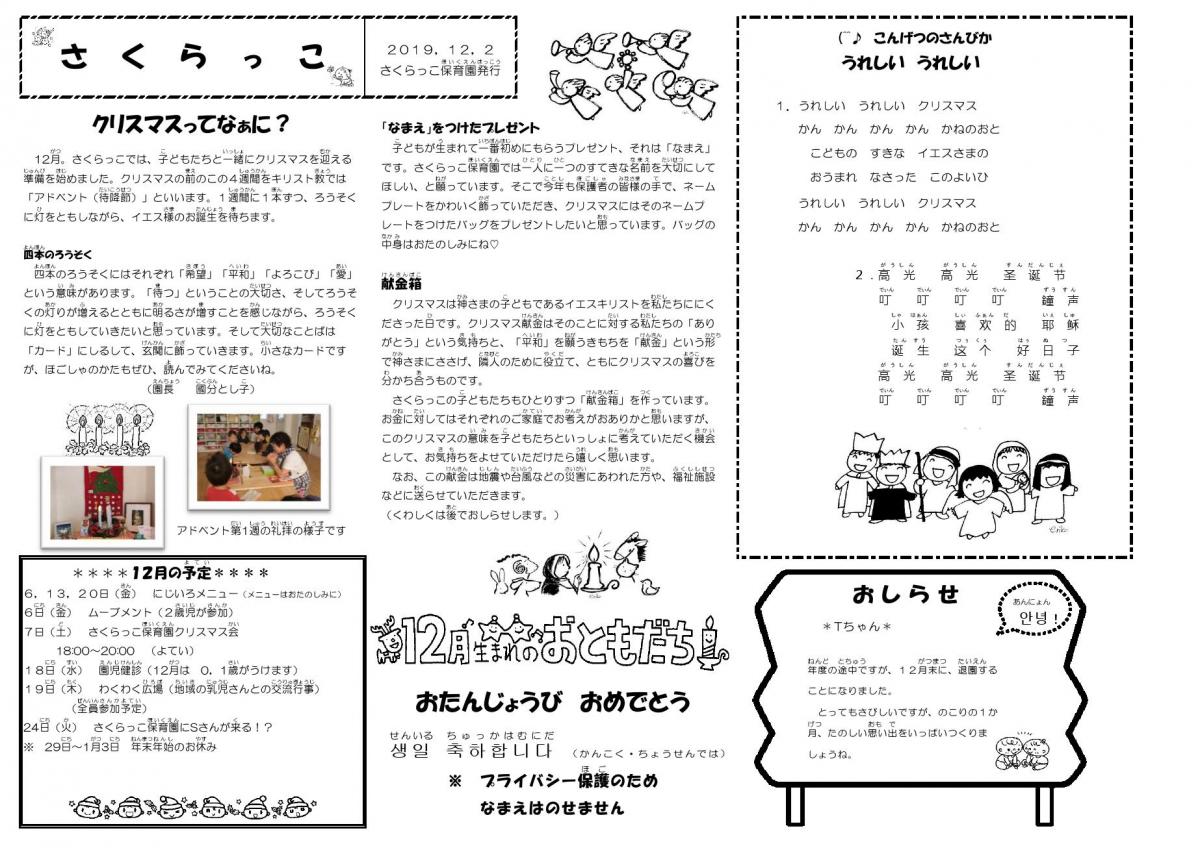 さくらっこ
２０１９．１２．２
さくらっこ保育園発行
クリスマスってなぁに？
１２月。さくらっこでは、子どもたちと一緒にクリスマスを迎える
準備を始めました。クリスマスの前のこの４週間をキリスト教では
「アドベント（待降節）」といいます。１週間に１本ずつ、ろうそく
に灯をともしながら、イエス様のお誕生を待ちます。
四本のろうそく
四本のろうそくにはそれぞれ「希望」「平和」「よろこび」「愛」
という意味があります。「待つ」ということの大切さ、そしてろうそ
くの灯りが増えるとともに明るさが増すことを感じながら、ろうそく
に灯をともしていきたいと思っています。そして大切なことばは
「カード」にしるして、玄関に飾っていきます。小さなカードです
が、ほごしゃのかたもぜひ、読んでみてくださいね。
（園長　國分とし子）
アドベント第1週の礼拝の様子です
＊＊＊＊12月の予定＊＊＊＊
６，１３，２０日（金）　にじいろメニュー（メニューはおたのしみに）
６日（金）　ムーブメント（２歳児が参加）
７日（土）　さくらっこ保育園クリスマス会
18:00～20:00　（よてい）
１８日（水）　園児健診（12月は　０，１歳がうけます）
１９日（木）　わくわく広場（地域の乳児さんとの交流行事）
（全員参加予定）
24日（火）　さくらっこ保育園にSさんが来る！？
※　29日～1月3日　年末年始のお休み
「なまえ」をつけたプレゼント
子どもが生まれて一番初めにもらうプレゼント、それは「なまえ」
です。さくらっこ保育園では一人に一つのすてきな名前を大切にして
ほしい、と願っています。そこで今年も保護者の皆様の手で、ネーム
プレートをかわいく飾っていただき、クリスマスにはそのネームプ
レートをつけたバッグをプレゼントしたいと思っています。バッグの
中身はおたのしみにね♡
献金箱
クリスマスは神さまの子どもであるイエスキリストを私たちににく
ださった日です。クリスマス献金はそのことに対する私たちの「あり
がとう」という気持ちと、「平和」を願うきもちを「献金」という形
で神さまにささげ、隣人のために役立て、ともにクリスマスの喜びを
分かち合うものです。
さくらっこの子どもたちもひとりずつ「献金箱」を作っています。
お金に対してはそれぞれのご家庭でお考えがおありかと思いますが、
このクリスマスの意味を子どもたちといっしょに考えていただく機会
として、お気持ちをよせていただけたら嬉しく思います。
なお、この献金は地震や台風などの災害にあわれた方や、福祉施設
などに送らせていただきます。
（くわしくは後でおしらせします。）
12月生まれのおともだち
おたんじょうび　おめでとう
せんいる　ちゅっかはむにだ
생일　축하합니다　（かんこく・ちょうせんでは）
※　プライバシー保護のため
なまえはのせません
（¨♪　こんげつのさんびか
うれしい　うれしい
１．うれしい　うれしい　クリスマス
かん　かん　かん　かん　かねのおと
こどもの　すきな　イエスさまの
おうまれ　なさった　このよいひ
うれしい　うれしい　クリスマス
かん　かん　かん　かん　かねのおと
２．高光　高光　圣诞节
叮　叮　叮　叮　鐘声
小孩　喜欢的　耶稣
诞生　这个　好日子
高光　高光　圣诞节
叮　叮　叮　叮　鐘声
おしらせ
あんにょん
안녕！
＊Tちゃん＊
年度の途中ですが、１２月末に、退園する
ことになりました。
とってもさびしいですが、のこりの１か
月、たのしい思い出をいっぱいつくりま
しょうね。